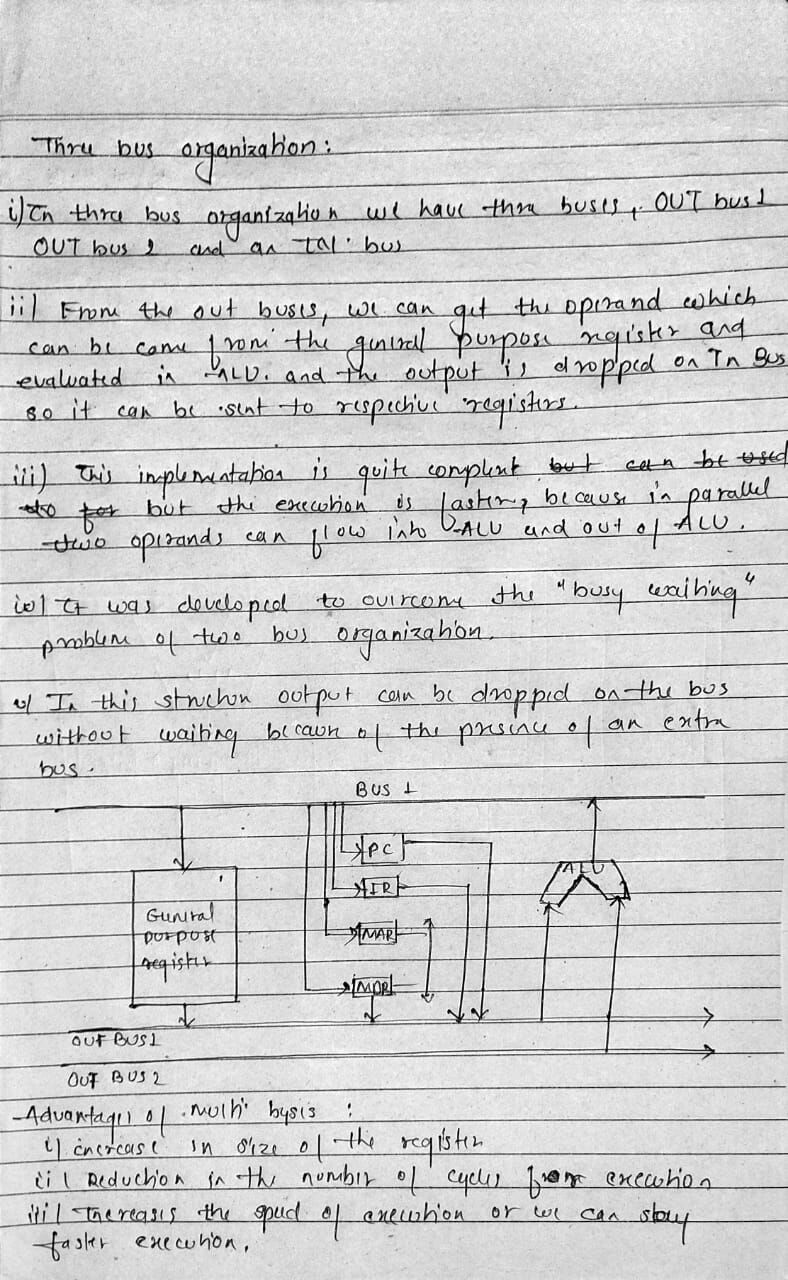 Three bus organization :
i) In three bus organization we have three buses, OUT bus 1
OUT bus 2 and an bus
ii) From the out buses, we can get the operand which
can be come from the general purpose register and
evaluated in ALU. and the output is dropped on In Bus
so it can be sent to respective registers.
iii) This implementation is quite but can be used
to for but the execution is faster, because in parallel
two operands can flow into ALU and out of ALU.
iv) It was developed to overcome the "busy waiting"
problem of two bus organization.
v) In this output can be dropped on the bus
without waiting because of the presence of an extra
bus.
BUS 1
PC
IR
ALU
General
purpose
register
MAR
MDR
OUT BUS 1
OUT BUS 2
- Advantages of :
i) increase in size of the register
ii) Reduction in the number of cycles execution
iii) Increases the speed of execution or we can
faster execution.